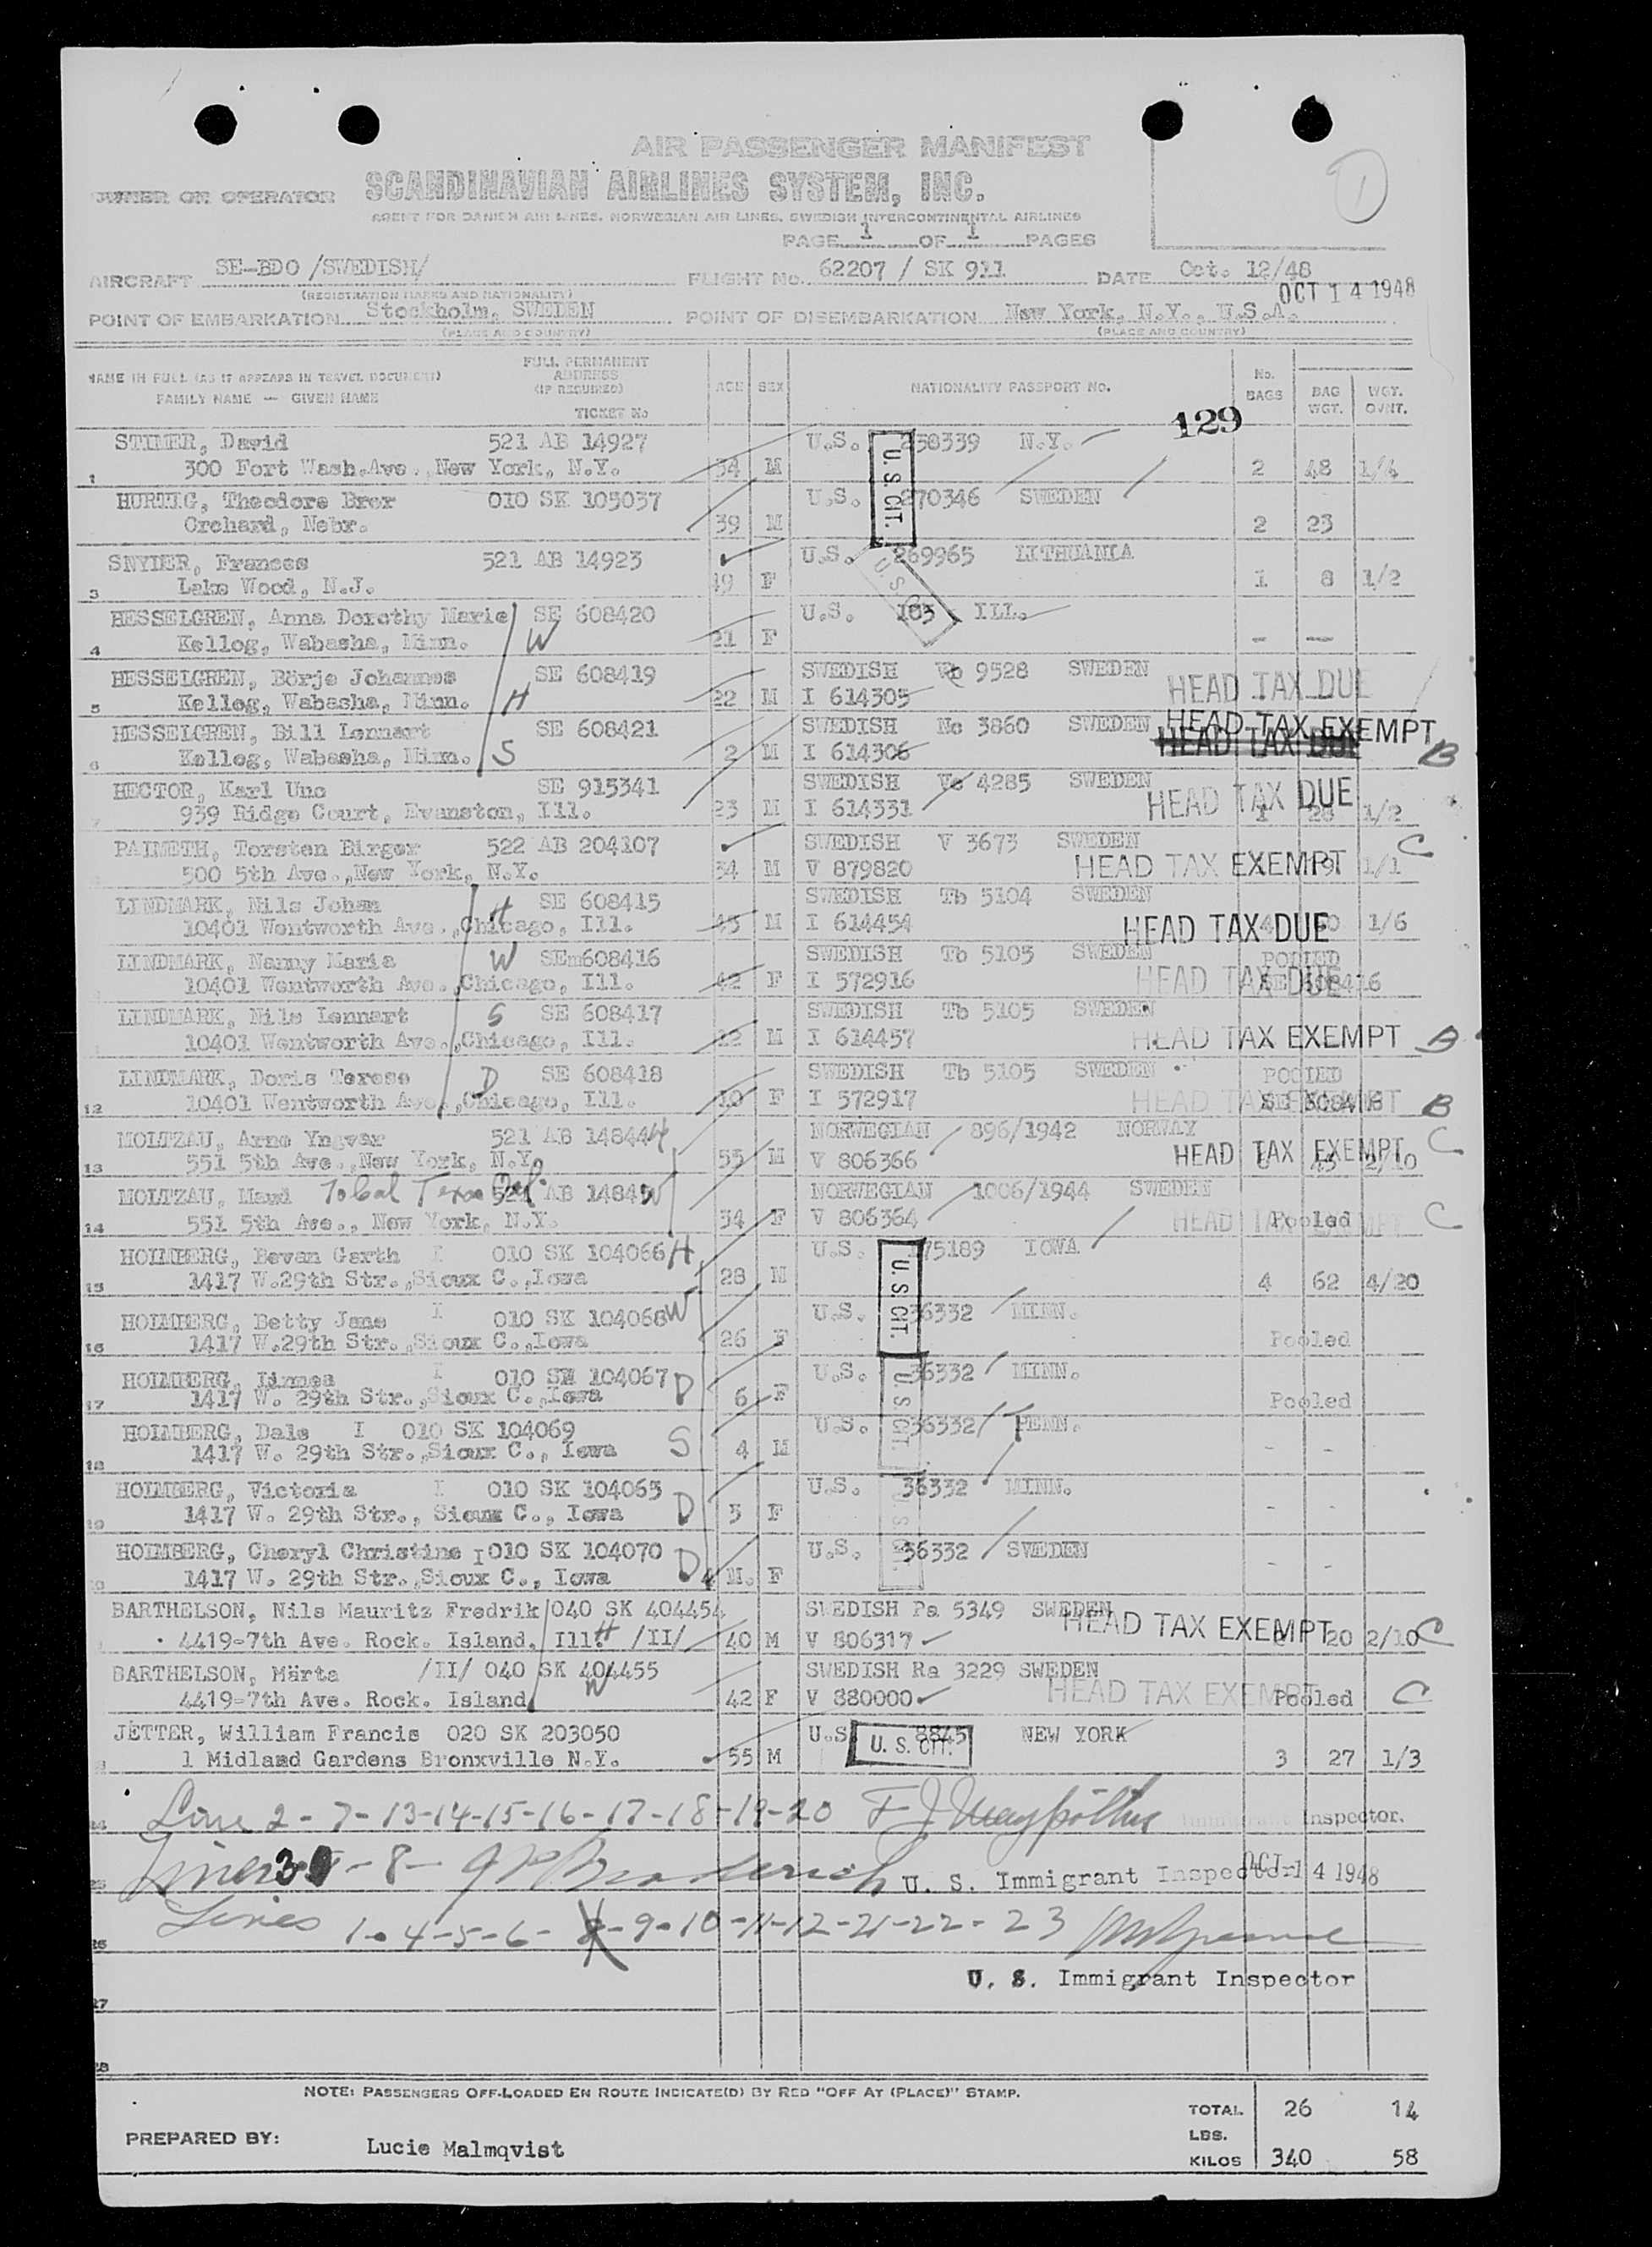 1
AIR PASSENGER MANIFEST
OWNER OR OPERATOR SCANDINAVIAN AIRLINES SYSTEM, INC.
AGENT FOR DANISH AIR LINES, NORWEGIAN AIR LINES, SWEDISH INTERCONTINENTAL AIRLINES
PAGE 1 OF 1 PAGES
AIRCRAFT SE-BDO /SWEDISH/ FLIGHT No. 62207 / SK 911 DATE Oct. 12/48
(REGISTRATION MARKS AND NATIONALITY) OCT 14 1948
POINT OF EMBARKATION Stockholm, SWEDEN POINT OF DISEMBARKATION New York, N.Y., U.S.A.
(PLACE AND COUNTRY) (PLACE AND COUNTRY)
NAME IN FULL (AS IT APPEARS IN TRAVEL DOCUMENT) FULL PERMANENT ADDRESS (IF REQUIRED) AGE SEX NATIONALITY PASSPORT No. No. BAGS BAG WGT. WGT. OVNT.
FAMILY NAME — GIVEN NAME TICKET No
129
STIMER, David 521 AB 14927 U.S. 238339 N.Y.
1 300 Fort Wash.Ave., New York, N.Y. 34 M 2 48 1/4
U. S. CIT.
HURTIG, Theodore Bror 010 SK 105037 U.S. 270346 SWEDEN
Orchard, Nebr. 39 M 2 23
SNYDER, Frances 521 AB 14923 U.S. 269965 LITHUANIA
3 Lake Wood, N.J. 49 F 1 8 1/2
HESSELGREN, Anna Dorothy Marie SE 608420 U.S. 103 ILL.
4 Kellog, Wabasha, Minn. W 21 F - --
HESSELGREN, Börje Johannes SE 608419 SWEDISH Vb 9528 SWEDEN
5 Kellog, Wabasha, Minn. H 22 M I 614305 HEAD TAX DUE
HESSELGREN, Bill Lennart SE 608421 SWEDISH Nc 3860 SWEDEN HEAD TAX EXEMPT
6 Kellog, Wabasha, Minn. S 2 M I 614306 HEAD TAX DUE B
HECTOR, Karl Uno SE 915341 SWEDISH Ve 4285 SWEDEN
939 Ridge Court, Evanston, Ill. 23 M I 614331 HEAD TAX DUE 1 28 1/2
PALMETH, Torsten Birger 522 AB 204107 SWEDISH V 3673 SWEDEN C
500 5th Ave., New York, N.Y. 34 M V 879820 HEAD TAX EXEMPT 19 1/1
LINDMARK, Nils Johan H SE 608415 SWEDISH Tb 5104 SWEDEN
10401 Wentworth Ave., Chicago, Ill. 45 M I 614454 HEAD TAX DUE 4 1/6
LINDMARK, Nanny Maria W SEm608416 SWEDISH Tb 5105 SWEDEN POOLED
10401 Wentworth Ave., Chicago, Ill. 42 F I 572916 HEAD TAX DUE
LINDMARK, Nils Lennart S SE 608417 SWEDISH Tb 5105 SWEDEN
10401 Wentworth Ave., Chicago, Ill. 12 M I 614457 HEAD TAX EXEMPT B
LINDMARK, Doris Terese D SE 608418 SWEDISH Tb 5105 SWEDEN POOLED
12 10401 Wentworth Ave., Chicago, Ill. 10 F I 572917 HEAD TAX EXEMPT B
MOLTZAU, Arne Yngvar 521 AB 14844 H NORWEGIAN 896/1942 NORWAY C
13 551 5th Ave., New York, N.Y. 55 M V 806366 HEAD TAX EXEMPT 45 2/10
MOLTZAU, Maud 521 AB 14845 W NORWEGIAN 1006/1944 SWEDEN
14 551 5th Ave., New York, N.Y. 34 F V 806364 HEAD TAX EXEMPT Pooled C
HOLMBERG, Bevan Garth I 010 SK 104066 H U.S. 175189 IOWA
15 1417 W.29th Str., Sioux C., Iowa 28 M 4 62 4/20
U. S. CIT.
HOLMBERG, Betty Jane I 010 SK 104068 W U.S. 36332 MINN.
16 1417 W.29th Str., Sioux C., Iowa 26 F Pooled
HOLMBERG, Linnea I 010 SK 104067 D U.S. 36332 MINN.
17 1417 W. 29th Str., Sioux C., Iowa 6 F Pooled
U. S. CIT.
HOLMBERG, Dale I 010 SK 104069 U.S. 36332 PENN.
18 1417 W. 29th Str., Sioux C., Iowa S 4 M - -
HOLMBERG, Victoria I 010 SK 104065 U.S. 36332 MINN.
19 1417 W. 29th Str., Sioux C., Iowa D 3 F - -
HOLMBERG, Cheryl Christine I 010 SK 104070 U.S. 36332 SWEDEN
1417 W. 29th Str., Sioux C., Iowa D 4 M. F - -
BARTHELSON, Nils Mauritz Fredrik 040 SK 404454 SWEDISH Pa 5349 SWEDEN
4419-7th Ave. Rock. Island, Ill. H /II/ 40 M V 806317 HEAD TAX EXEMPT 20 2/10 C
BARTHELSON, Märta /II/ 040 SK 404455 SWEDISH Ra 3229 SWEDEN
4419-7th Ave. Rock. Island W 42 F V 880000 HEAD TAX EXEMPT Pooled C
JETTER, William Francis 020 SK 203050 U.S. 8845 NEW YORK
1 Midland Gardens Bronxville N.Y. 55 M U. S. CIT. 3 27 1/3
Line 2-7-13-14-15-16-17-18-19-20 Inspector.
Lines 3 - 8 - U. S. Immigrant Inspector OCT 14 1948
Lines 1-4-5-6-8-9-10-11-12-21-22-23
U. S. Immigrant Inspector
27
28
NOTE: PASSENGERS OFF-LOADED EN ROUTE INDICATE(D) BY RED "OFF AT (PLACE)" STAMP.
TOTAL 26 14
LBS.
PREPARED BY: Lucie Malmqvist
KILOS 340 58